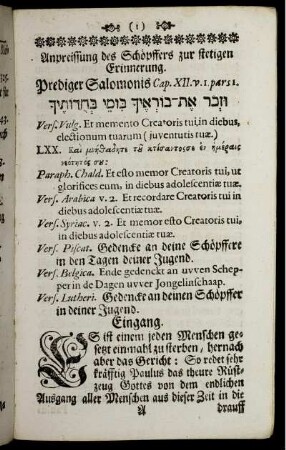 ( 1 )
Anpreissung des Schöpffers zur stetigen
Erinnerung.
Prediger Salomonis Cap. XII. v. 1. pars 1.
וּזְכֹר אֶת־בּוֹרְאֶיךָ בִּימֵי בְּחֻרוֹתֶיךָ
Vers. Vulg. Et memento Creatoris tui, in diebus,
electionum tuarum ( juventutis tuæ.)
LXX. Καὶ μνήσθητι τοῦ κτίσαντός σε ἐν ἡμέραις
νεότητός σου:
Paraph. Chald. Et esto memor Creatoris tui, ut
glorifices eum, in diebus adolescentiæ tuæ.
Vers. Arabica v. 2. Et recordare Creatoris tui in
diebus adolescentiæ tuæ.
Vers. Syriac. v. 2. Et memor esto Creatoris tui,
in diebus adolescentiæ tuæ.
Vers. Piscat. Gedencke an deine Schöpffere
in den Tagen deiner Jugend.
Vers. Belgica. Ende gedenckt an uvven Schep-
per in de Dagen uvver Jongelinschaap.
Vers. Lutheri. Gedencke an deinen Schöpffer
in deiner Jugend.
Eingang.
ES ist einem jeden Menschen ge-
setzt einmahl zu sterben, hernach
aber das Gericht: So redet sehr
kräfftig Paulus das theure Rüst-
zeug Gottes von dem endlichen
Ausgang aller Menschen aus dieser Zeit in die
A drauff